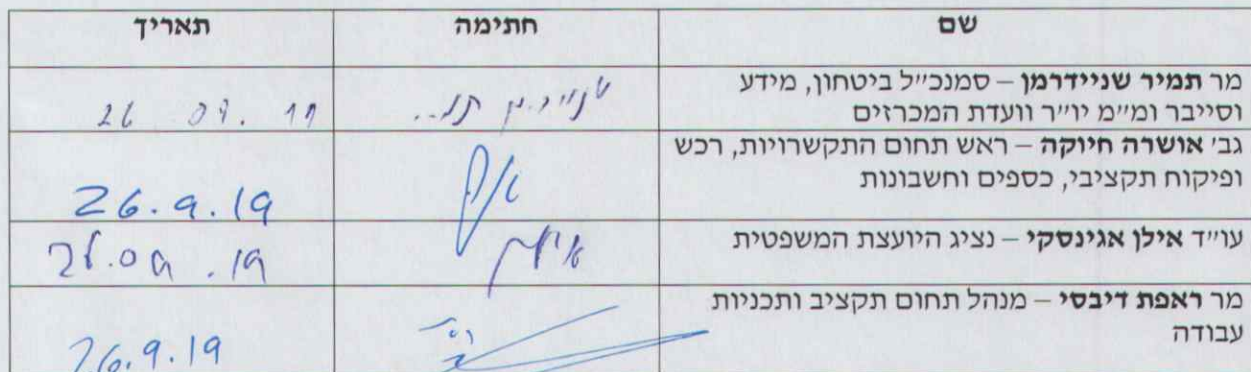 שם חתימה תאריך
מר תמיר שניידרמן – סמנכ״ל ביטחון, מידע 26.09.19
וסייבר ומ״מ יו״ר וועדת המכרזים
גב׳ אושרה חיוקה – ראש תחום התקשרויות, רכש
ופיקוח תקציבי, כספים וחשבונות 26.9.19
עו״ד אילן אגינסקי – נציג היועצת המשפטית אילן 26.09.19
מר ראפת דיבסי – מנהל תחום תקציב ותכניות
עבודה 26.9.19